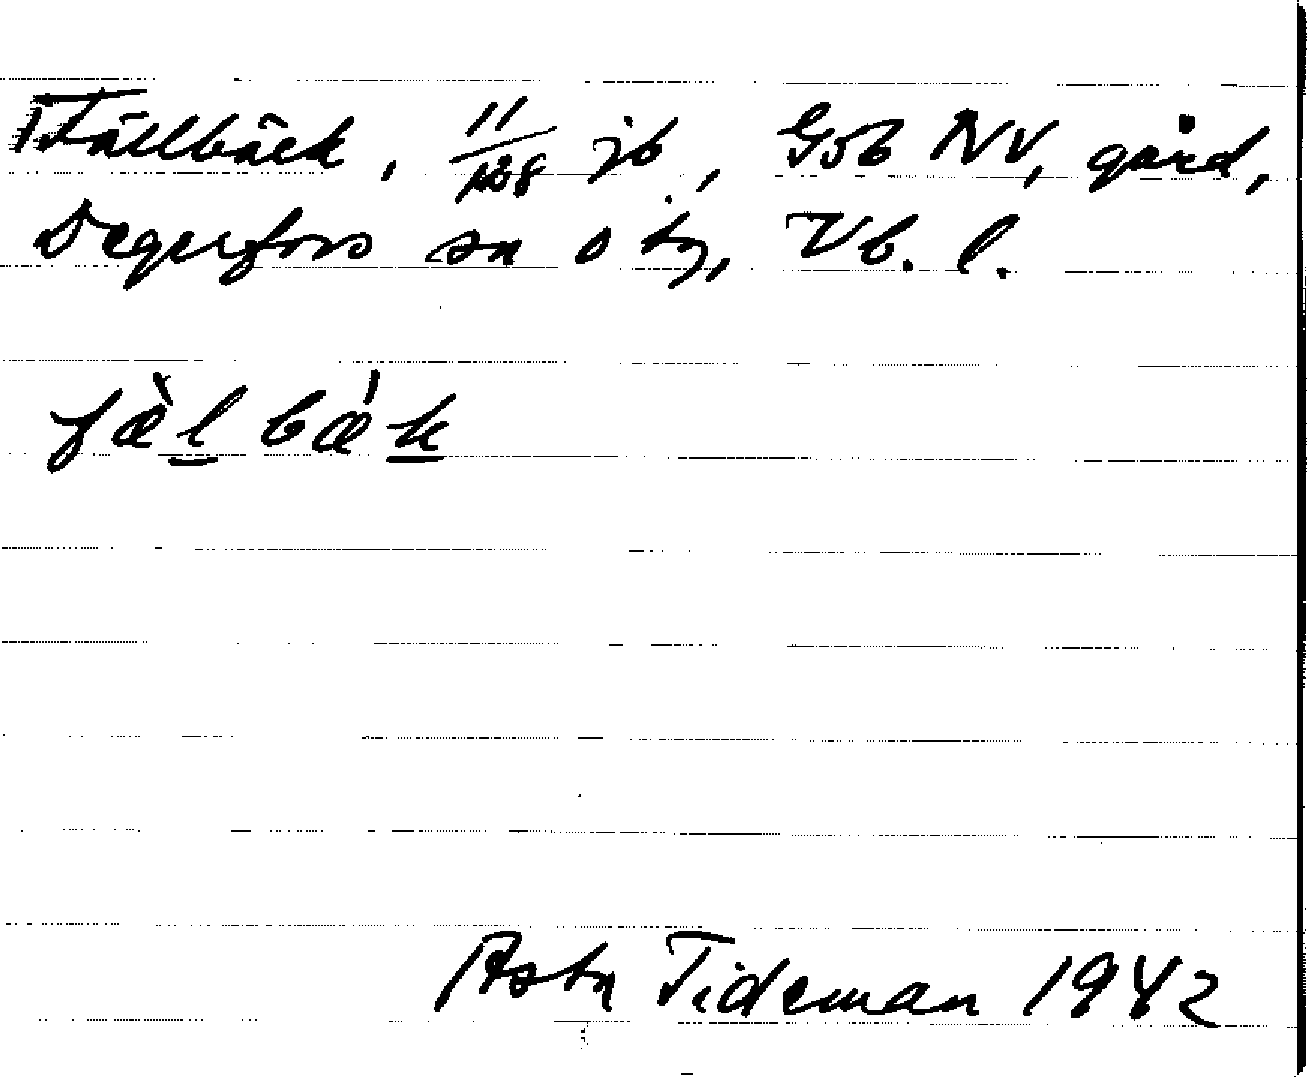 Fällbäck, 11/128 jb, Gsb NV, gård,
Degerfors sn o tg, Vb. l.
fæ̀l bǽk
Asta Tideman 1942